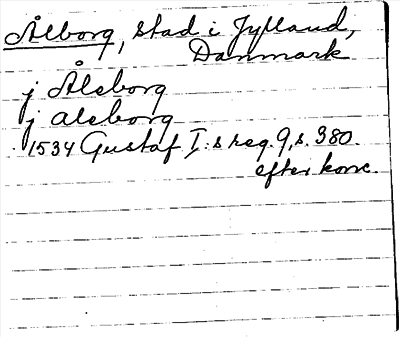 Ålborg, stad i Jylland,
Danmark
j Ålsborg
j alsborg
1534 Gustaf I:s reg. 9, s. 380.
efter konc.